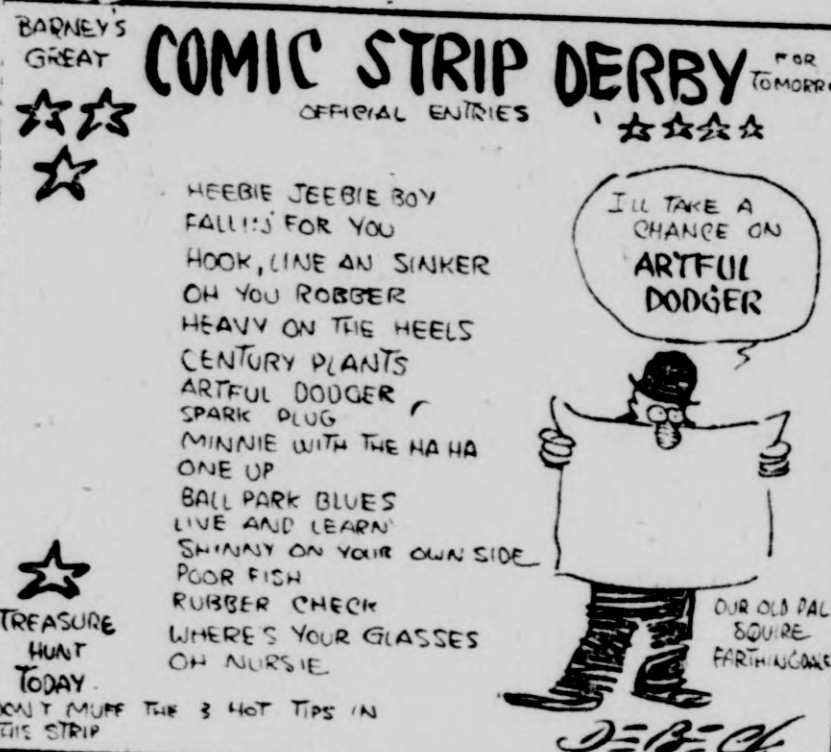 BARNEY'S
GREAT
COMIC STRIP DERBY
FOR
TOMORR
OFFICIAL ENTRIES
HEEBIE JEEBIE BOY
FALLIN' FOR YOU
HOOK, LINE AN SINKER
OH YOU ROBBER
HEAVY ON THE HEELS
CENTURY PLANTS
ARTFUL DODGER
SPARK PLUG
MINNIE WITH THE HA HA
ONE UP
BALL PARK BLUES
LIVE AND LEARN
SHINNY ON YOUR OWN SIDE
POOR FISH
RUBBER CHECK
WHERE'S YOUR GLASSES
OH NURSIE
I'LL TAKE A
CHANCE ON
ARTFUL
DODGER
OUR OLD PAL
SQUIRE
FARTHINGDALE
TREASURE
HUNT
TODAY
DON'T MUFF THE 3 HOT TIPS IN
THIS STRIP
DE BECK